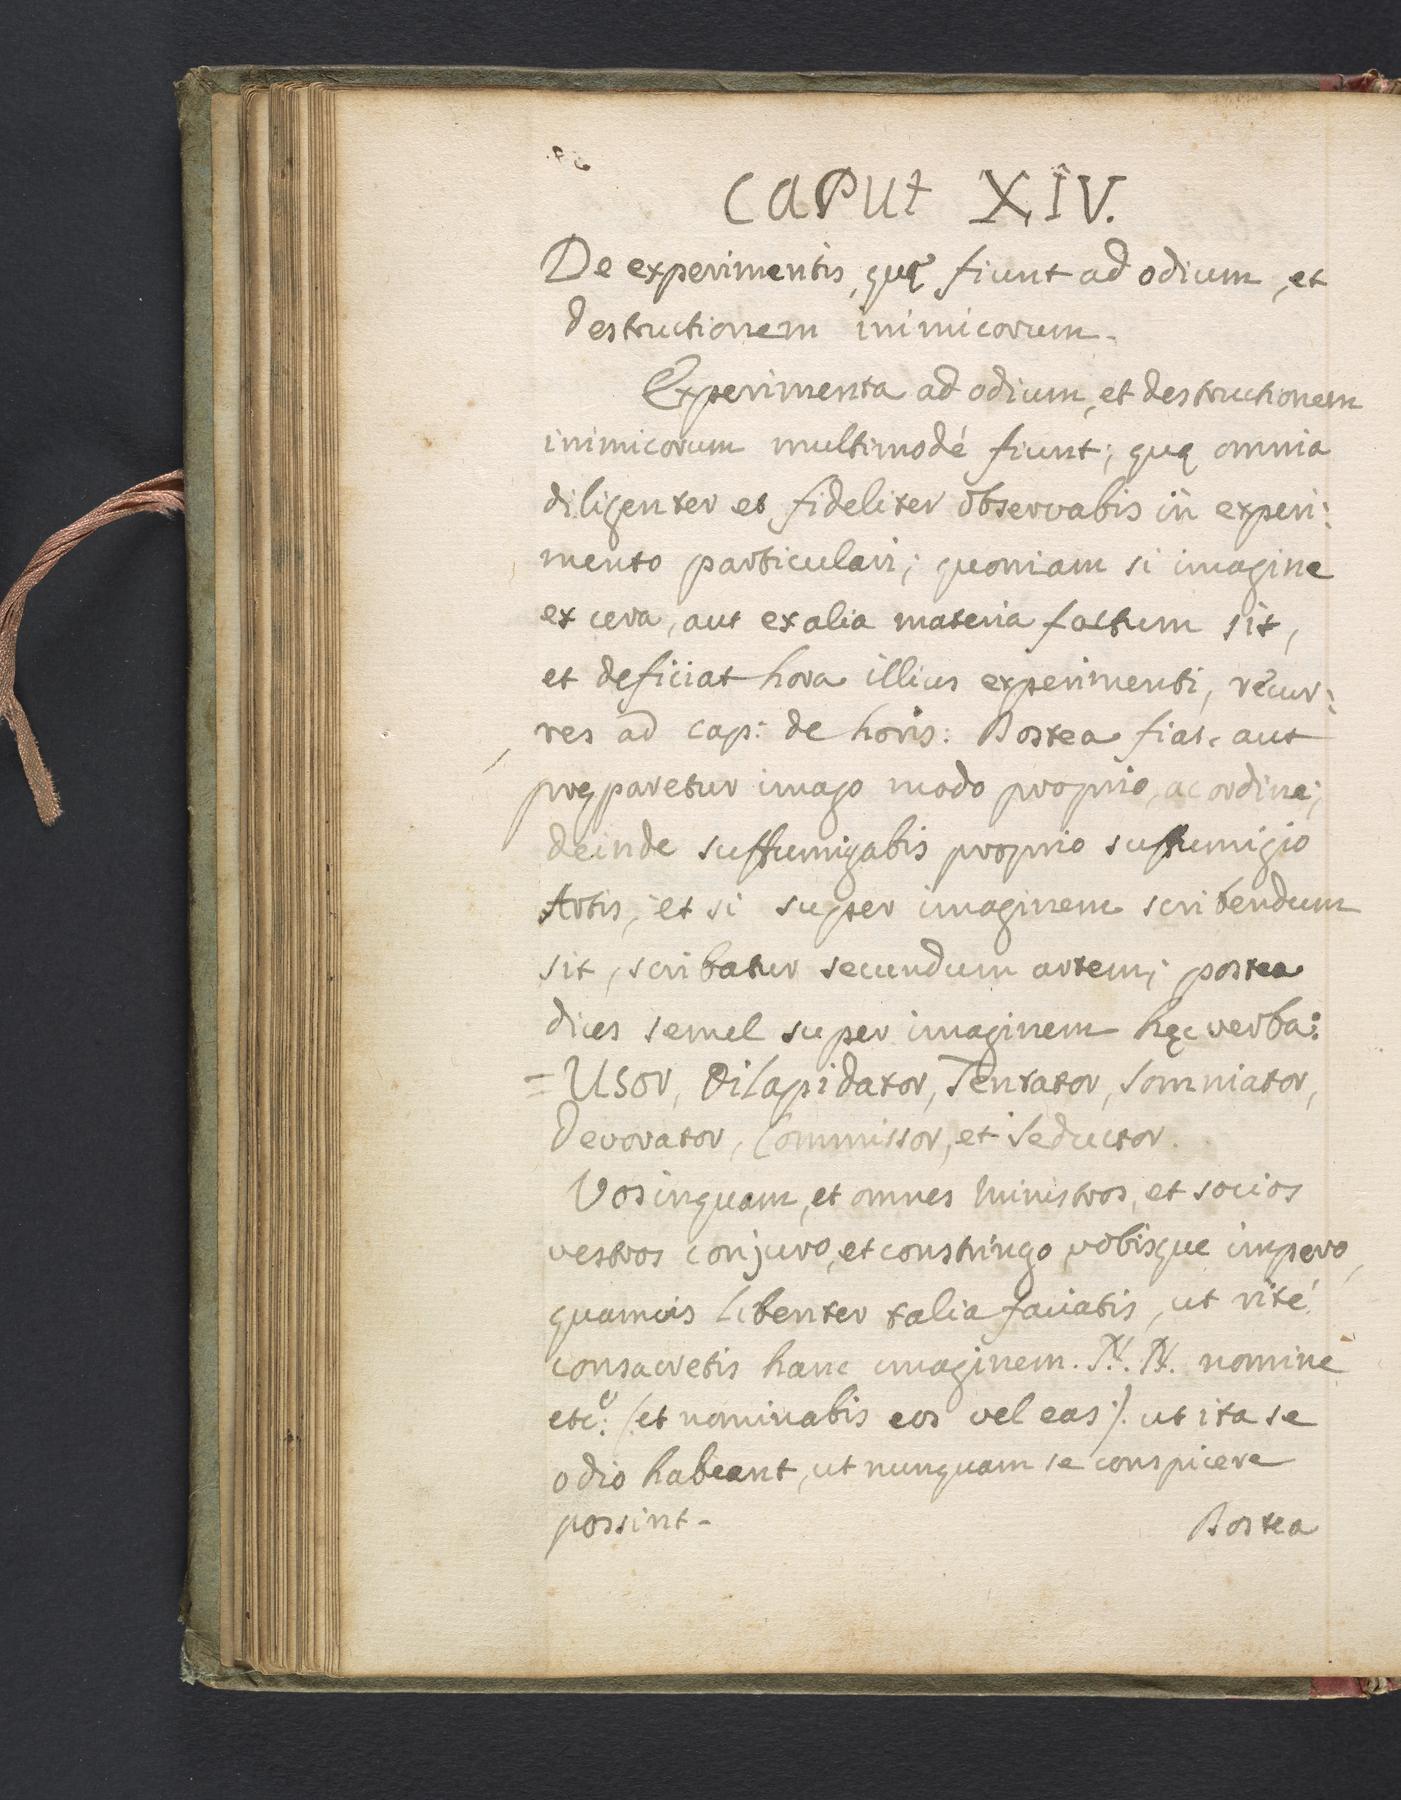 CAPUt XIV.
De experimentis, quę fiunt ad odium, et
destructionem inimicorum.
Experimenta ad odium, et destructionem
inimicorum multimodé fiunt; quę omnia
diligenter et fideliter observabis in experi:
mento particulari; quoniam si imagine
ex cera, aut ex alia materia factum sit,
et deficiat hora illius experimenti, recur:
res ad cap: de horis: Postea fiat, aut
pręparetur imago modo proprio, ac ordine;
deinde suffumigabis proprio suffumigio
Artis, et si super imaginem scribendum
sit, scribatur secundum artem; postea
dices semel super imaginem hęc verba:
= Usor, Dilapidator, Tentator, Somniator,
Devorator, Commissor, et Seductor.
Vos inquam, et omnes Ministros, et socios
vestros conjuro, et constringo, vobisque impero,
quamvis libenter talia faciatis, ut rité
consacretis hanc imaginem. N. N. nomine
etc: (: et nominabis eos vel eas :). ut ita se
odio habeant, ut nunquam se conspicere
possint-
Postea